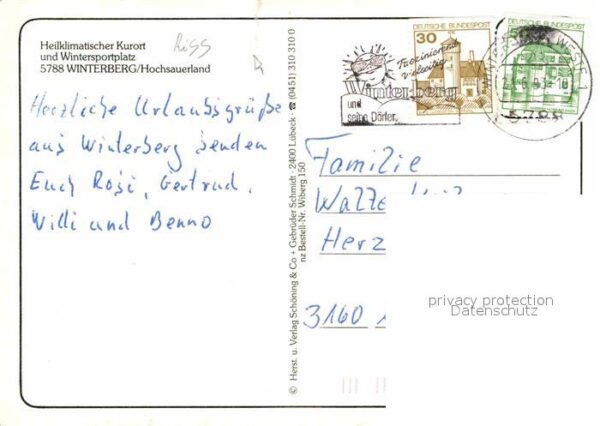 Heilklimatischer Kurort
und Wintersportplatz
5788 WINTERBERG/Hochsauerland
Riss
Herzliche Urlaubsgrüße
aus Winterberg senden
Euch Rosi, Gertrud,
Willi und Benno
© Herst. u. Verlag Schöning & Co + Gebrüder Schmidt · 2400 Lübeck · ☎ (0451) 310 310 0
nz Bestell-Nr. Wiberg 150
Faszinierend
vielseitig
Winterberg
und
seine Dörfer.
30
DEUTSCHE BUNDESPOST
DEUTSCHE BUNDESPOST
5788
Familie
Herz
3160 1
privacy protection
Datenschutz